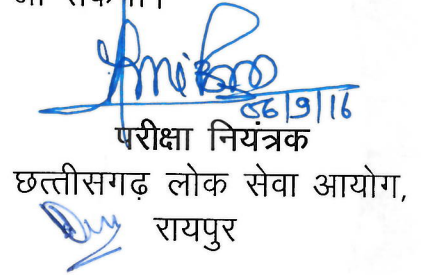 06/9/16
परीक्षा नियंत्रक
छत्तीसगढ़ लोक सेवा आयोग,
रायपुर